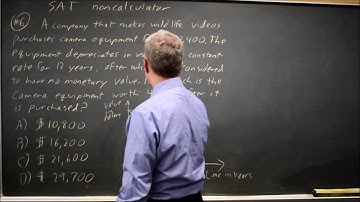 SAT noncalculator
#6 A company that makes wildlife videos
purchases camera equipment ,400. The
equipment depreciates in constant
rate for 12 years, after considered
to have no monetary value.
camera equipment worth
is purchased? value
A) $10,800 dollars
B) $16,200
C) $21,600
D) $29,700 time in years